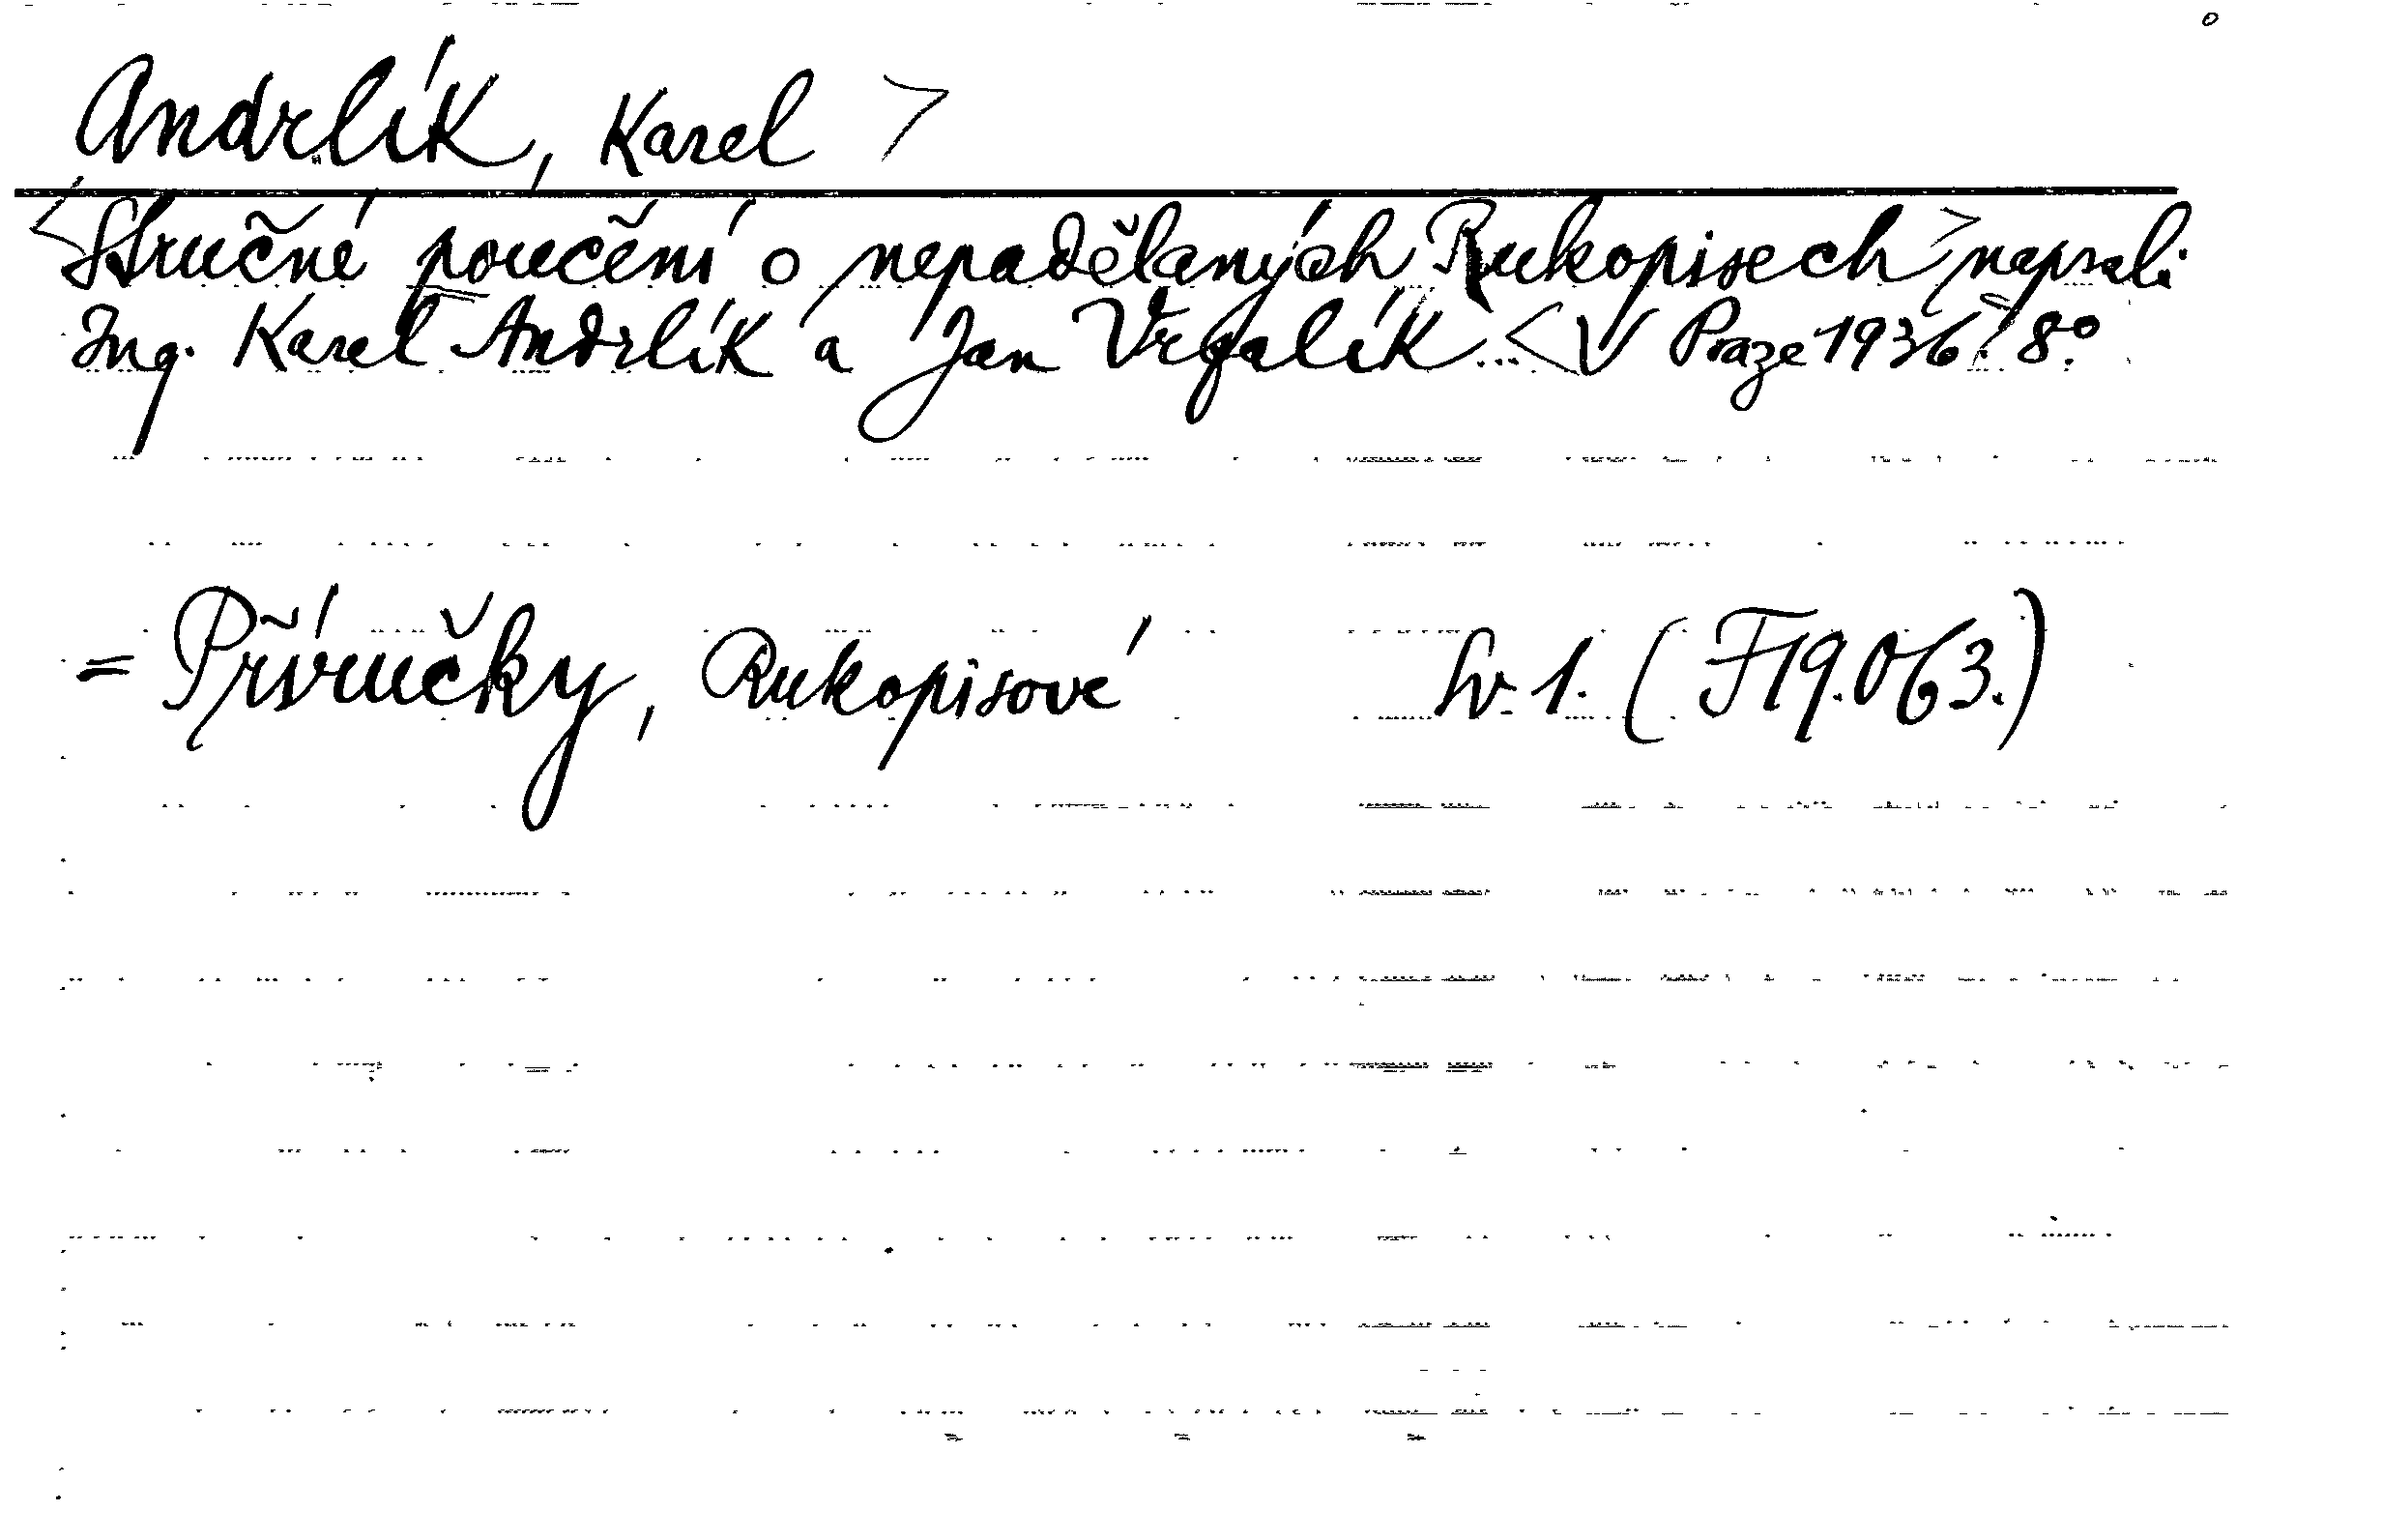 Andrlík, Karel >
<Stručné poučení o nepadělaných Rukopisech> napsali
Ing. Karel Andrlík a Jan Vrzalík. <V Praze 1936.> 8°.
= Příručky, Rukopisové Sv. 1. (F19.063.)